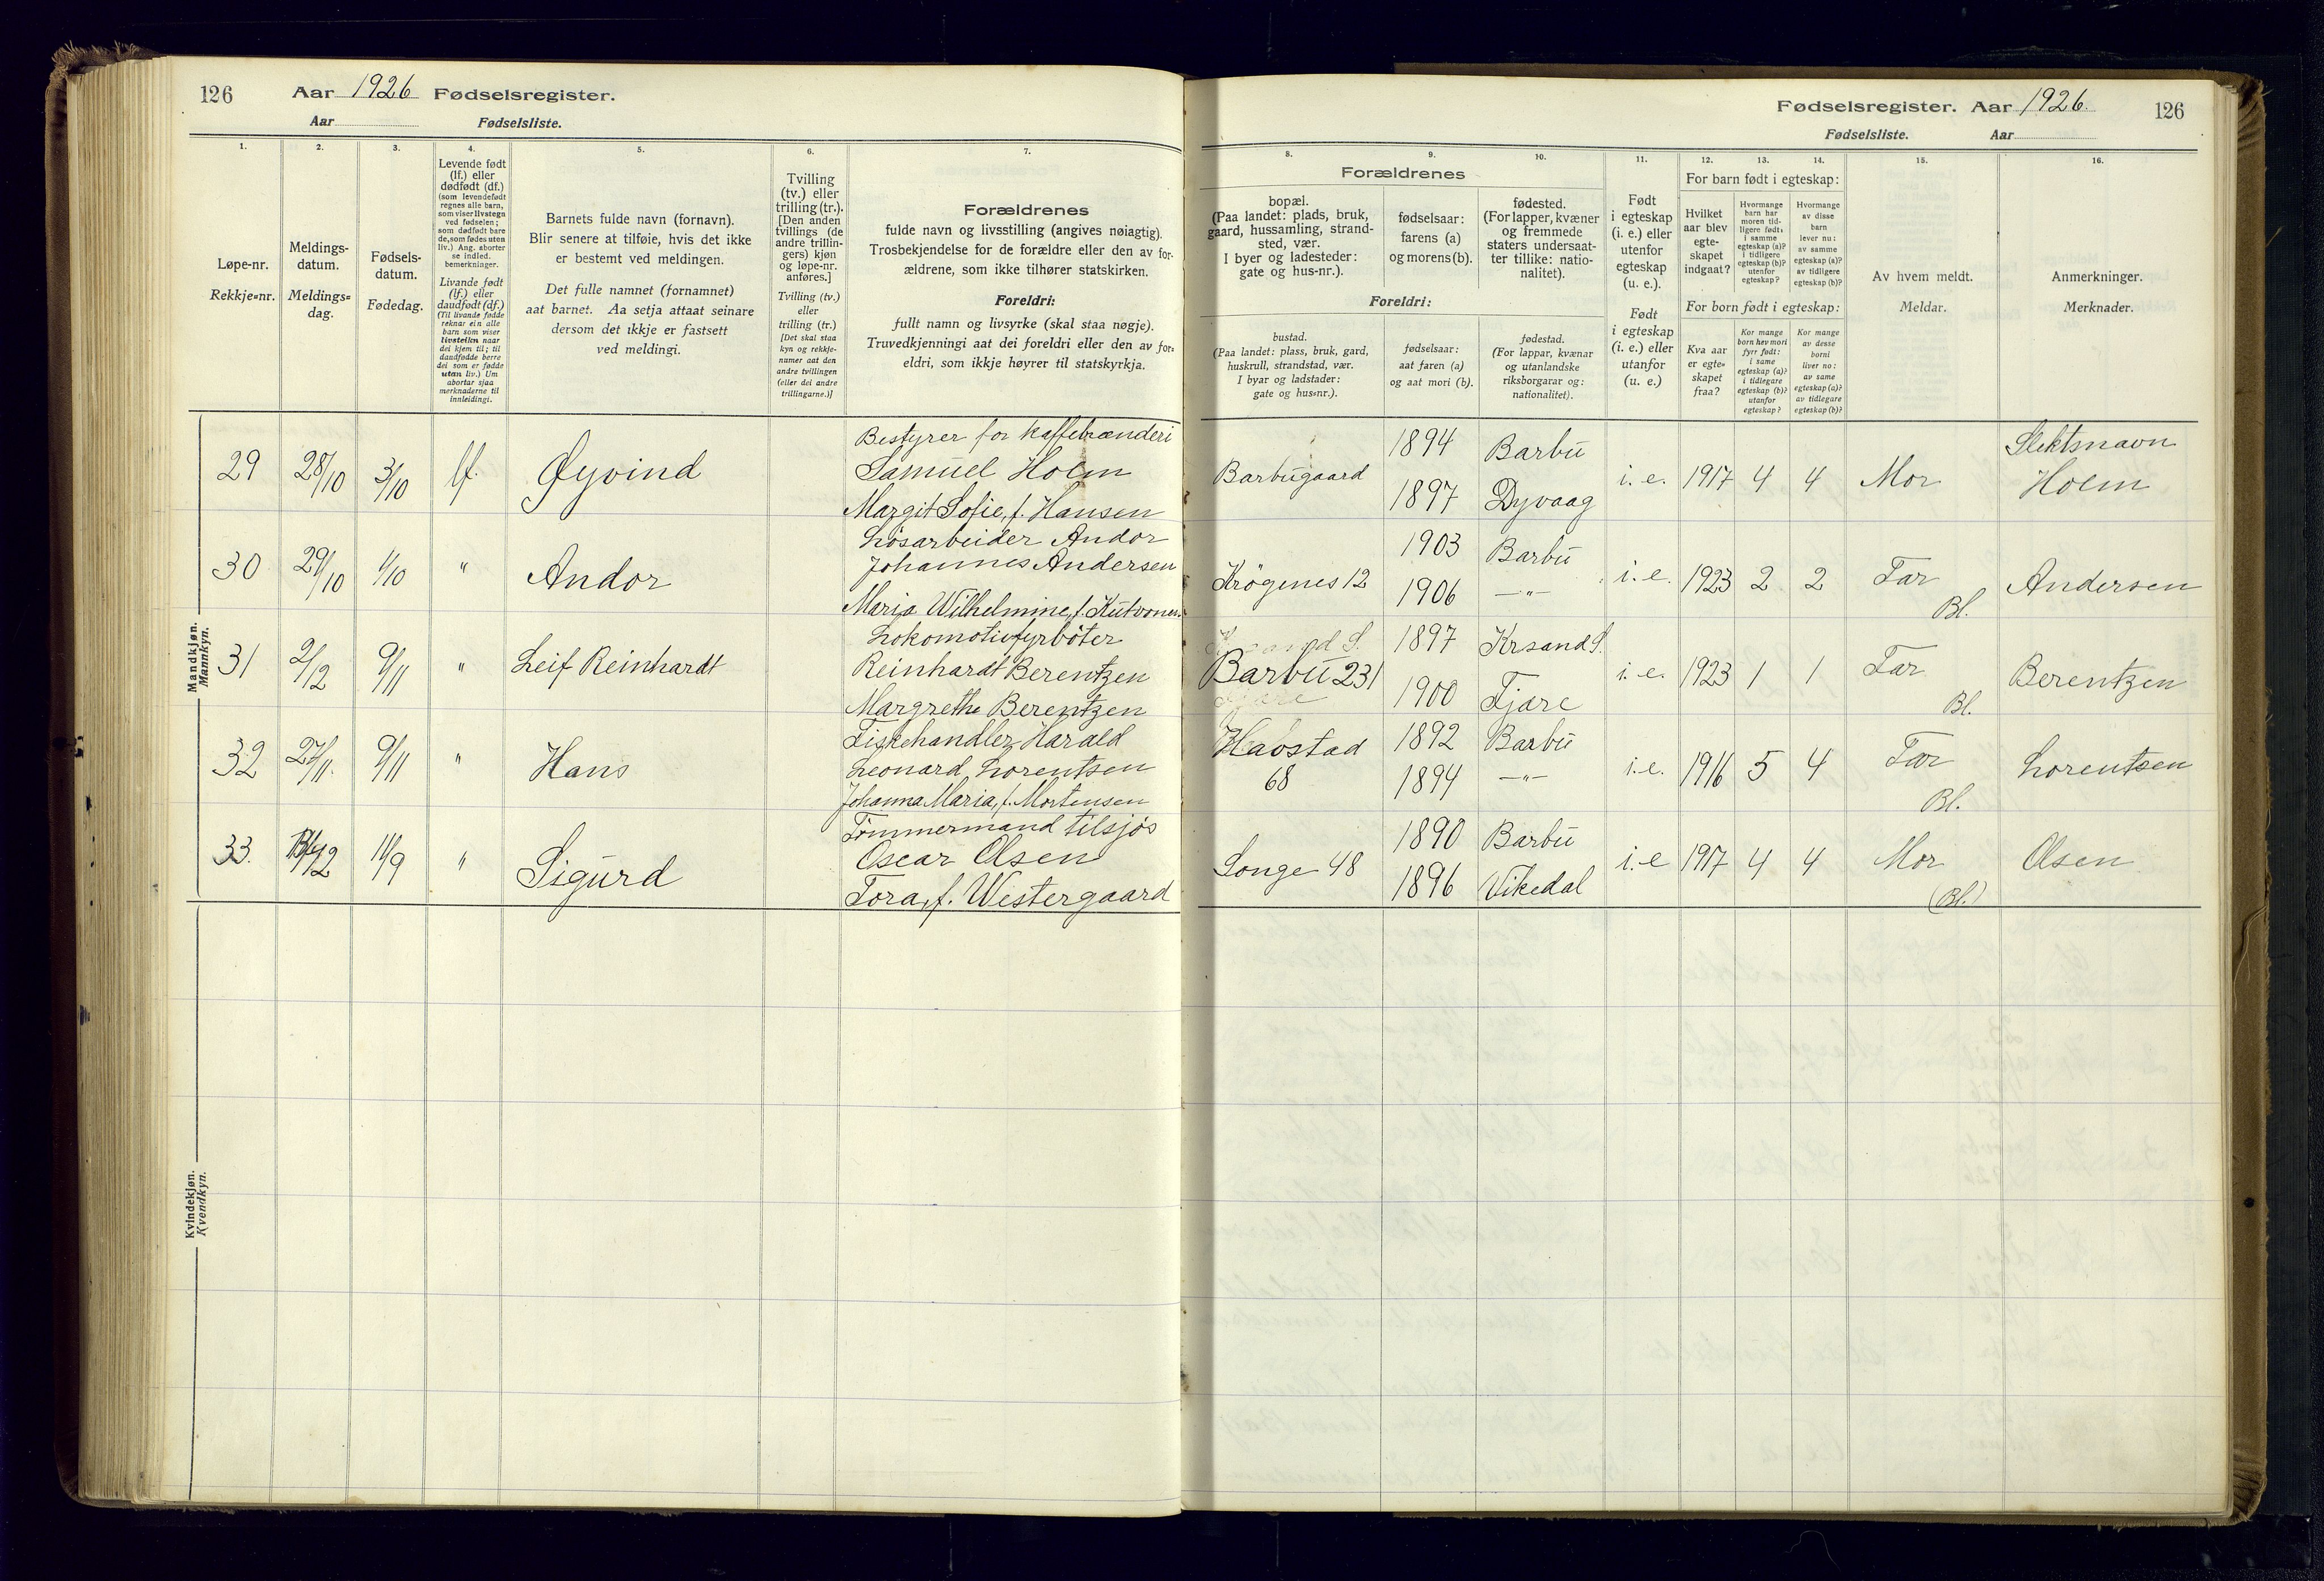 126 Aar 1926 Fødselsregister.
Aar Fødselsliste.
Fødselsregister. Aar 1926. 126
Fødselsliste. Aar
1. 2. 3. 4. 5. 6. 7.
Løpe-nr.
Rekkje=nr.
Meldings-
datum.
Meldings=
dag.
Fødsels-
datum.
Fødedag.
Levende født
(lf.) eller
dødfødt (df.)
(som levendefødt
regnes alle barn,
som viser livstegn
ved fødselen;
som dødfødt bare
de, som fødes uten
liv.) Ang. aborter
se indled.
bemerkninger.
Livande født
(lf.) eller
daudfødt (df.)
(Til livande fødde
reknar ein alle
barn som viser
livsteikn naar
dei kjem til; til
daudfødde berre
dei som er fødde
utan liv.) Um
abortar sjaa
merknaderne til
innleidingi.
Barnets fulde navn (fornavn).
Blir senere at tilføie, hvis det ikke
er bestemt ved meldingen.
Det fulle namnet (fornamnet)
aat barnet. Aa setja attaat seinare
dersom det ikkje er fastsett
ved meldingi.
Tvilling
(tv.) eller
trilling (tr.).
[Den anden
tvillings (de
andre trillin-
gers) kjøn
og løpe-nr.
anføres.]
Tvilling (tv.)
eller
trilling (tr.)
[Det skal staa
kyn og rekkje-
numer aat den
andre tvillingen
(eller dei andre
trillingarne.)]
Forældrenes
fulde navn og livsstilling (angives nøiagtig).
Trosbekjendelse for de forældre eller den av for-
ældrene, som ikke tilhører statskirken.
Foreldri:
fullt namn og livsyrke (skal staa nøgje).
Truvedkjenningi aat dei foreldri eller den av for=
eldri, som ikkje høyrer til statskyrkja.
8. 9. 10. 11. 12. 13. 14. 15. 16.
Forældrenes
bopæl.
(Paa landet: plads, bruk,
gaard, hussamling, strand-
sted, vær.
I byer og ladesteder:
gate og hus-nr.).
fødselsaar:
farens (a)
og morens (b).
fødested.
(For lapper, kvæner
og fremmede
staters undersaat-
ter tillike: natio-
nalitet).
Foreldri:
bustad.
(Paa landet: plass, bruk, gard,
huskrull, strandstad, vær.
I byar og ladstader:
gate og hus=nr.).
fødselsaar:
aat faren (a)
og aat mori (b).
fødestad.
(For lappar, kvænar
og utanlandske
riksborgarar og:
nationalitet).
Født
i egteskap
(i. e.) eller
utenfor
egteskap
(u. e.).
Født
i egteskap
(i. e.) eller
utanfor
(u. e.)
For barn født i egteskap:
Hvilket
aar blev
egte-
skapet
indgaat?
Hvormange
barn har
moren tid-
ligere født,
i samme
egteskap (a)?
i tidligere
egteskap (b)?
utenfor
egteskap?
Hvormange
av disse
barn
lever nu:
av samme
egteskap (a)?
av tidligere
egteskap (b)?
For born født i egteskap:
Kva aar
er egte=
skapet
fraa?
Kor mange
born hev mori
fyrr født:
i same
egteskap (a)?
i tidlegare
egteskap (b)?
utanfor
egteskap?
Kor mange
av desse
borni
liver no:
av same
egteskap (a)?
av tidlegare
egteskap (b)?
Av hvem meldt.
Meldar.
Anmerkninger.
Merknader.
Mandkjøn.
Mannkyn.
Bestyrer for kaffebrænderi
29 28/10 3/10 lf. Øyvind Samuel Holm
Margit Sofie, f. Hansen
Barbugaard 1894 Barbu i. e. 1917 4 4 Mor Slektsnavn
1897 Dyvaag Holm
Løsarbeider Andor
30 29/10 1/10 " Andor Johannes Andersen
Maria Wilhelmine, f.
Krögenes 12 1903 Barbu i. e. 1923 2 2 Far Andersen
1906 —"— Bl.
Lokomotivfyrböter
31 2/12 9/11 " Leif Reinhardt Reinhardt Berentzen
Margrethe Berentzen
Barbu 231 1897 Krsand S. i. e. 1923 1 1 Far Berentzen
1900 Fjære Bl.
Fiskehandler Harald
32 27/11. 9/11 " Hans Leonard Lorentsen
Johanna Maria, f. Mortensen
Havstad 1892 Barbu i. e. 1916 5 4 Far Lorentsen
68 1894 —"— Bl.
Tömmermand tilsjøs
33. 11/9 " Sigurd Oscar Olsen
Tora, f. Westergaard
Songe 48 1890 Barbu i. e 1917 4 4 Mor Olsen
1896 Vikedal (Bl.)
Kvindekjøn.
Kvendkyn.